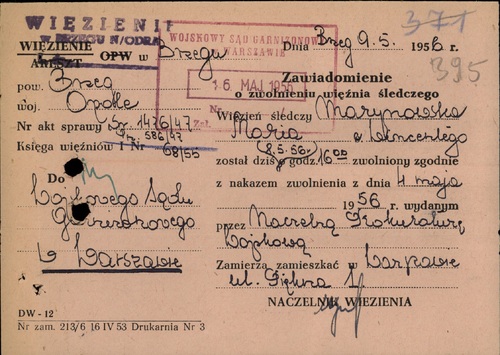 WIĘZIENIE
w BRZEGU N/ODRĄ
WIĘZIENIE OPW w Brzegu
ARESZT
pow. Brzeg
woj. Opole
Nr akt sprawy Sr 1476/47
586/47
Księga więźniów I Nr 68/55
Do
Wojskowego Sądu
Garnizonowego
w Warszawie
DW - 12
Nr zam. 213/6 16 IV 53 Drukarnia Nr 3
WOJSKOWY SĄD GARNIZONOWY
WARSZAWIE
16 MAJ 1956
Nr
Zał.
371
395
Dnia Brzeg 9.5. 1956 r.
Zawiadomienie
o zwolnieniu więźnia śledczego
Więzień śledczy Marynowska
Maria c. Wincentego
(8.5.56r.)
został dziś o godz. 16 00 zwolniony zgodnie
z nakazem zwolnienia z dnia 4 maja
1956 r. wydanym
przez Naczelną Prokuraturę
Wojskową
Zamierza zamieszkać w Warszawie
ul. Piękna 1
NACZELNIK WIĘZIENIA